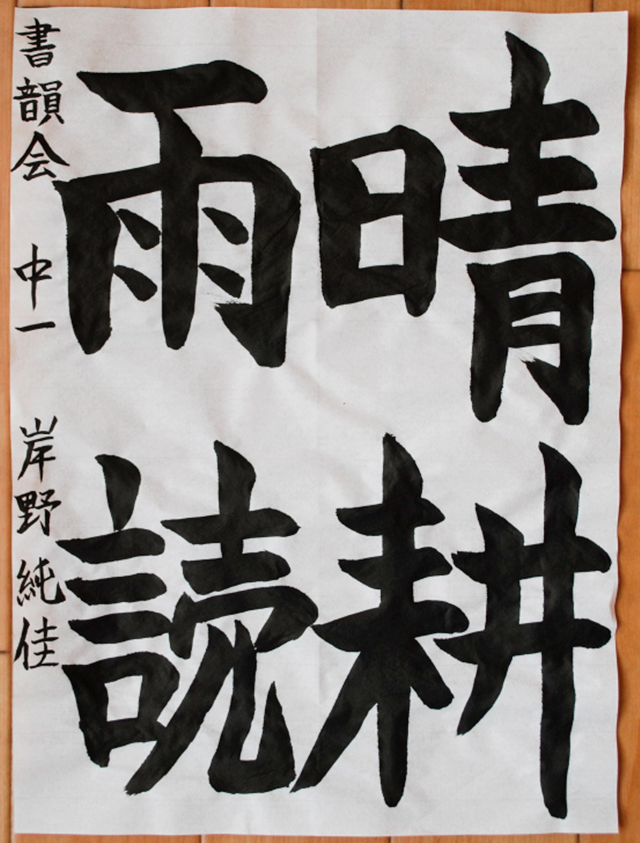 晴耕
雨読
書韻会 中一 岸野純佳